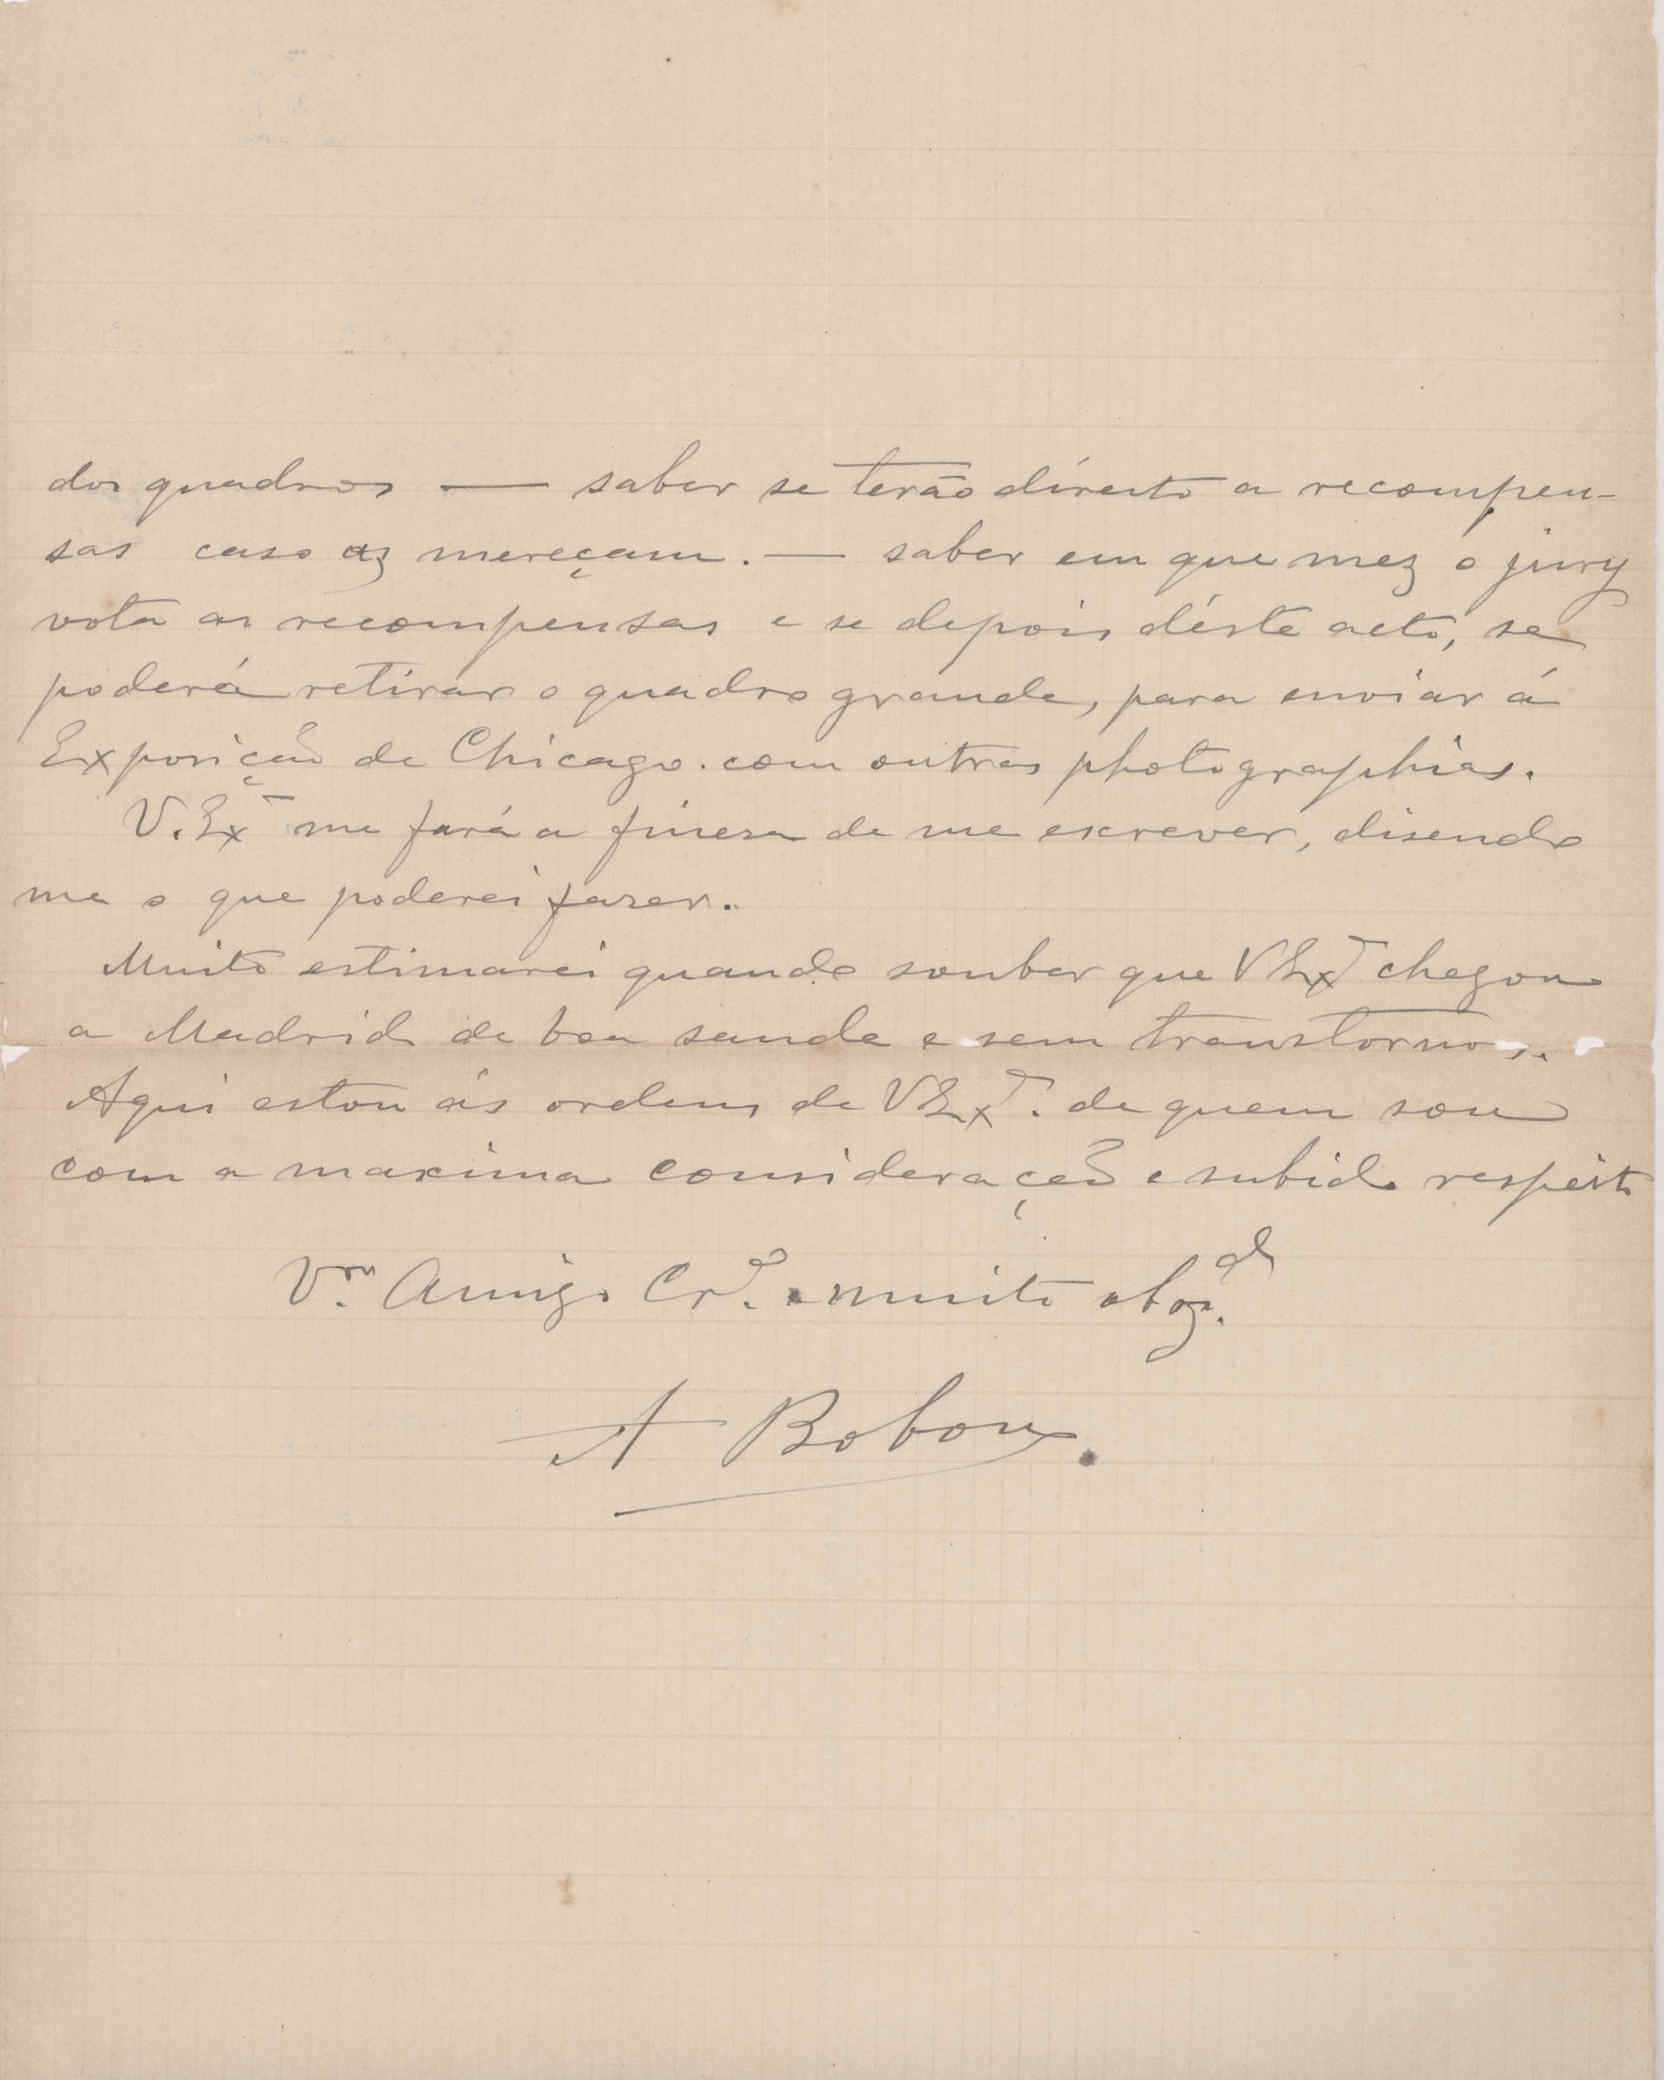 dos quadros — saber se terão direito a recompen-
sas caso as mereçam. — saber em que mez o jury
vota as recompensas e se depois déste acto, se
poderá retirar o quadro grande, para enviar á
Exposição de Chicago. com outras photographias.
V. Exª me fará a finesa de me escrever, disendo
me o que poderei faser.
Muito estimarei quando souber que V Exª chegou
a Madrid de boa saude e sem transtornos.
Aqui estou ás ordens de V Exª. de quem sou
com a maxima consideração e subido respeito
Vro. Amigo Crº. e muito obgdº.
A Bobone.